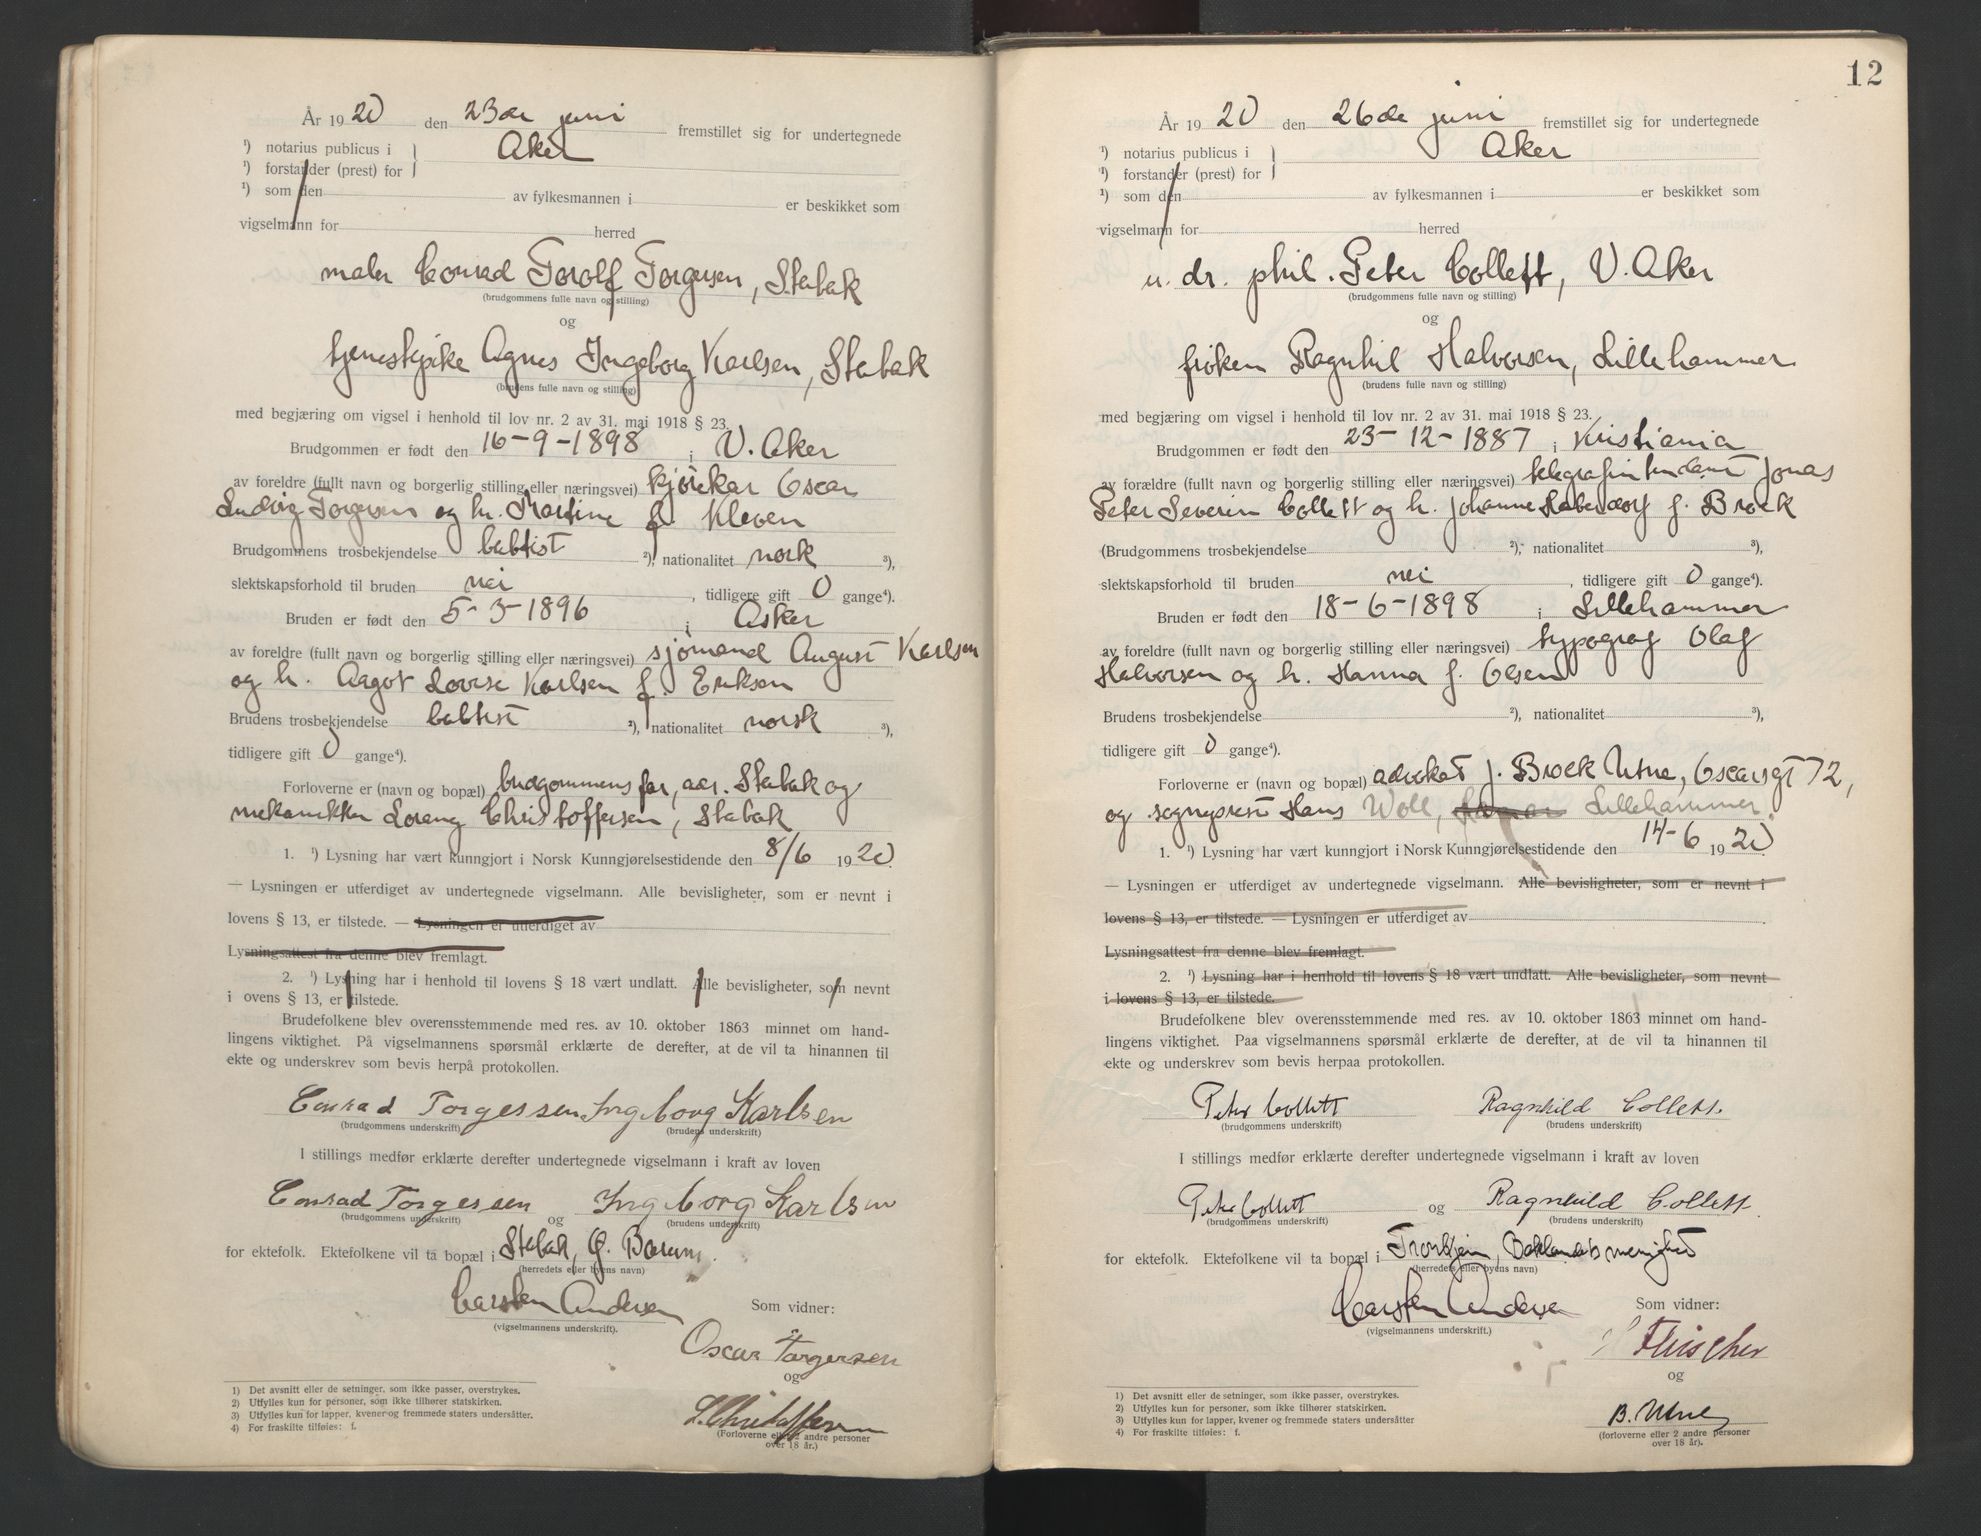 År 1920 den 23de juni fremstillet sig for undertegnede
¹) notarius publicus i } Aker
¹) forstander (prest) for
¹) som den av fylkesmannen i er beskikket som
vigselmann for herred
maler Conrad Torolf Torgersen, Stabak
(brudgommens fulle navn og stilling)
og
tjenestepike Agnes Ingeborg Karlsen, Stabak
(brudens fulle navn og stilling)
med begjæring om vigsel i henhold til lov nr. 2 av 31. mai 1918 § 23.
Brudgommen er født den 16-9-1898 i V. Aker
av foreldre (fullt navn og borgerlig stilling eller næringsvei) kjørekar Oscar
Ludvig Torgersen og h. Martine f. Kleven
Brudgommens trosbekjendelse babtist ²), nationalitet norsk ³),
slektskapsforhold til bruden nei, tidligere gift 0 gange⁴).
Bruden er født den 5-3-1896 i Asker
av foreldre (fullt navn og borgerlig stilling eller næringsvei) sjømand August Karlsen
og h. Aagot Lovise Karlsen f. Eriksen
Brudens trosbekjendelse babtist ²), nationalitet norsk ³),
tidligere gift 0 gange⁴).
Forloverne er (navn og bopæl) brudgommens far, adr. Stabak og
mekaniker Lorang Christoffersen, Stabak
1. ¹) Lysning har vært kunngjort i Norsk Kunngjørelsestidende den 8/6 1920.
— Lysningen er utferdiget av undertegnede vigselmann. Alle bevisligheter, som er nevnt i
lovens § 13, er tilstede. — Lysningen er utferdiget av
Lysningsattest fra denne blev fremlagt.
2. ¹) Lysning har i henhold til lovens § 18 vært undlatt. Alle bevisligheter, som nevnt
i ovens § 13, er tilstede.
Brudefolkene blev overensstemmende med res. av 10. oktober 1863 minnet om hand-
lingens viktighet. På vigselmannens spørsmål erklærte de derefter, at de vil ta hinannen til
ekte og underskrev som bevis herpå protokollen.
Conrad Torgessen Ingeborg Karlsen
(brudgommens underskrift) (brudens underskrift)
I stillings medfør erklærte derefter undertegnede vigselmann i kraft av loven
Conrad Torgessen og Ingeborg Karlsen
(brudgommens underskrift) (brudens underskrift)
for ektefolk. Ektefolkene vil ta bopæl i Stabak, Ø. Bærum.
(herredets eller byens navn)
Carsten Andersen Som vidner:
(vigselmannens underskrift).
Oscar Torgersen
og
L. Christoffersen
(Forloverne eller 2 andre personer
over 18 år.)
1) Det avsnitt eller de setninger, som ikke passer, overstrykes.
2) Utfylles kun for personer, som ikke tilhører statskirken.
3) Utfylles kun for lapper, kvener og fremmede staters undersåtter.
4) For fraskilte tilføies: f.
12
År 1920 den 26de juni fremstillet sig for undertegnede
¹) notarius publicus i } Aker
¹) forstander (prest) for
¹) som den av fylkesmannen i er beskikket som
vigselmann for herred
u. dr. phil. Peter Collett, V. Aker
(brudgommens fulle navn og stilling)
og
frøken Ragnhil Halvorsen, Lillehammer
(brudens fulle navn og stilling)
med begjæring om vigsel i henhold til lov nr. 2 av 31. mai 1918 § 23.
Brudgommen er født den 23-12-1887 i Kristiania
av forældre (fullt navn og borgerlig stilling eller næringsvei) telegrafintendant Jonas
Peter Severin Collett og h. Johanne f. Brock
(Brudgommens trosbekjendelse ²), nationalitet ³),
slektskapsforhold til bruden nei, tidligere gift 0 gange⁴).
Bruden er født den 18-6-1898 i Lillehammer
av foreldre (fullt navn og borgerlig stilling eller næringsvei) typograf Olaf
Halvorsen og h. Hanna f. Olsen
Brudens trosbekjendelse ²), nationalitet ³),
tidligere gift 0 gange⁴).
Forloverne er (navn og bopæl) advokat J. Brock Utne, Oscarsgt 72,
og sogneprest Hans Woll, Lillehammer.
1. ¹) Lysning har vært kunngjort i Norsk Kunngjørelsestidende den 14-6 1920
— Lysningen er utferdiget av undertegnede vigselmann. Alle bevisligheter, som er nevnt i
lovens § 13, er tilstede. — Lysningen er utferdiget av
Lysningsattest fra denne blev fremlagt.
2. ¹) Lysning har i henhold til lovens § 18 vært undlatt. Alle bevisligheter, som nevnt
i lovens § 13, er tilstede.
Brudefolkene blev overensstemmende med res. av 10. oktober 1863 minnet om hand-
lingens viktighet. Paa vigselmannens spørsmål erklærte de derefter, at de vil ta hinannen til
ekte og underskrev som bevis herpaa protokollen.
Peter Collett Ragnhild Collett.
(brudgommens underskrift) (brudens underskrift)
I stillings medfør erklærte derefter undertegnede vigselmann i kraft av loven
Peter Collett og Ragnhild Collett.
(brudgommens underskrift) (brudens underskrift)
for ektefolk. Ektefolkene vil ta bopæl i Trondhjem, Baklandets menighet
(herredets eller byens navn)
Carsten Andersen Som vidner:
(vigselmannens underskrift.)
Fleischer
og
B. Utne
(forloverne eller 2 andre personer
over 18 år).
1) Det avsnitt eller de setninger, som ikke passer, overstrykes.
2) Utfylles kun for personer, som ikke tilhører statskirken.
3) Utfylles kun for lapper, kvener og fremmede staters undersåtter
4) For fraskilte tilføies: f.